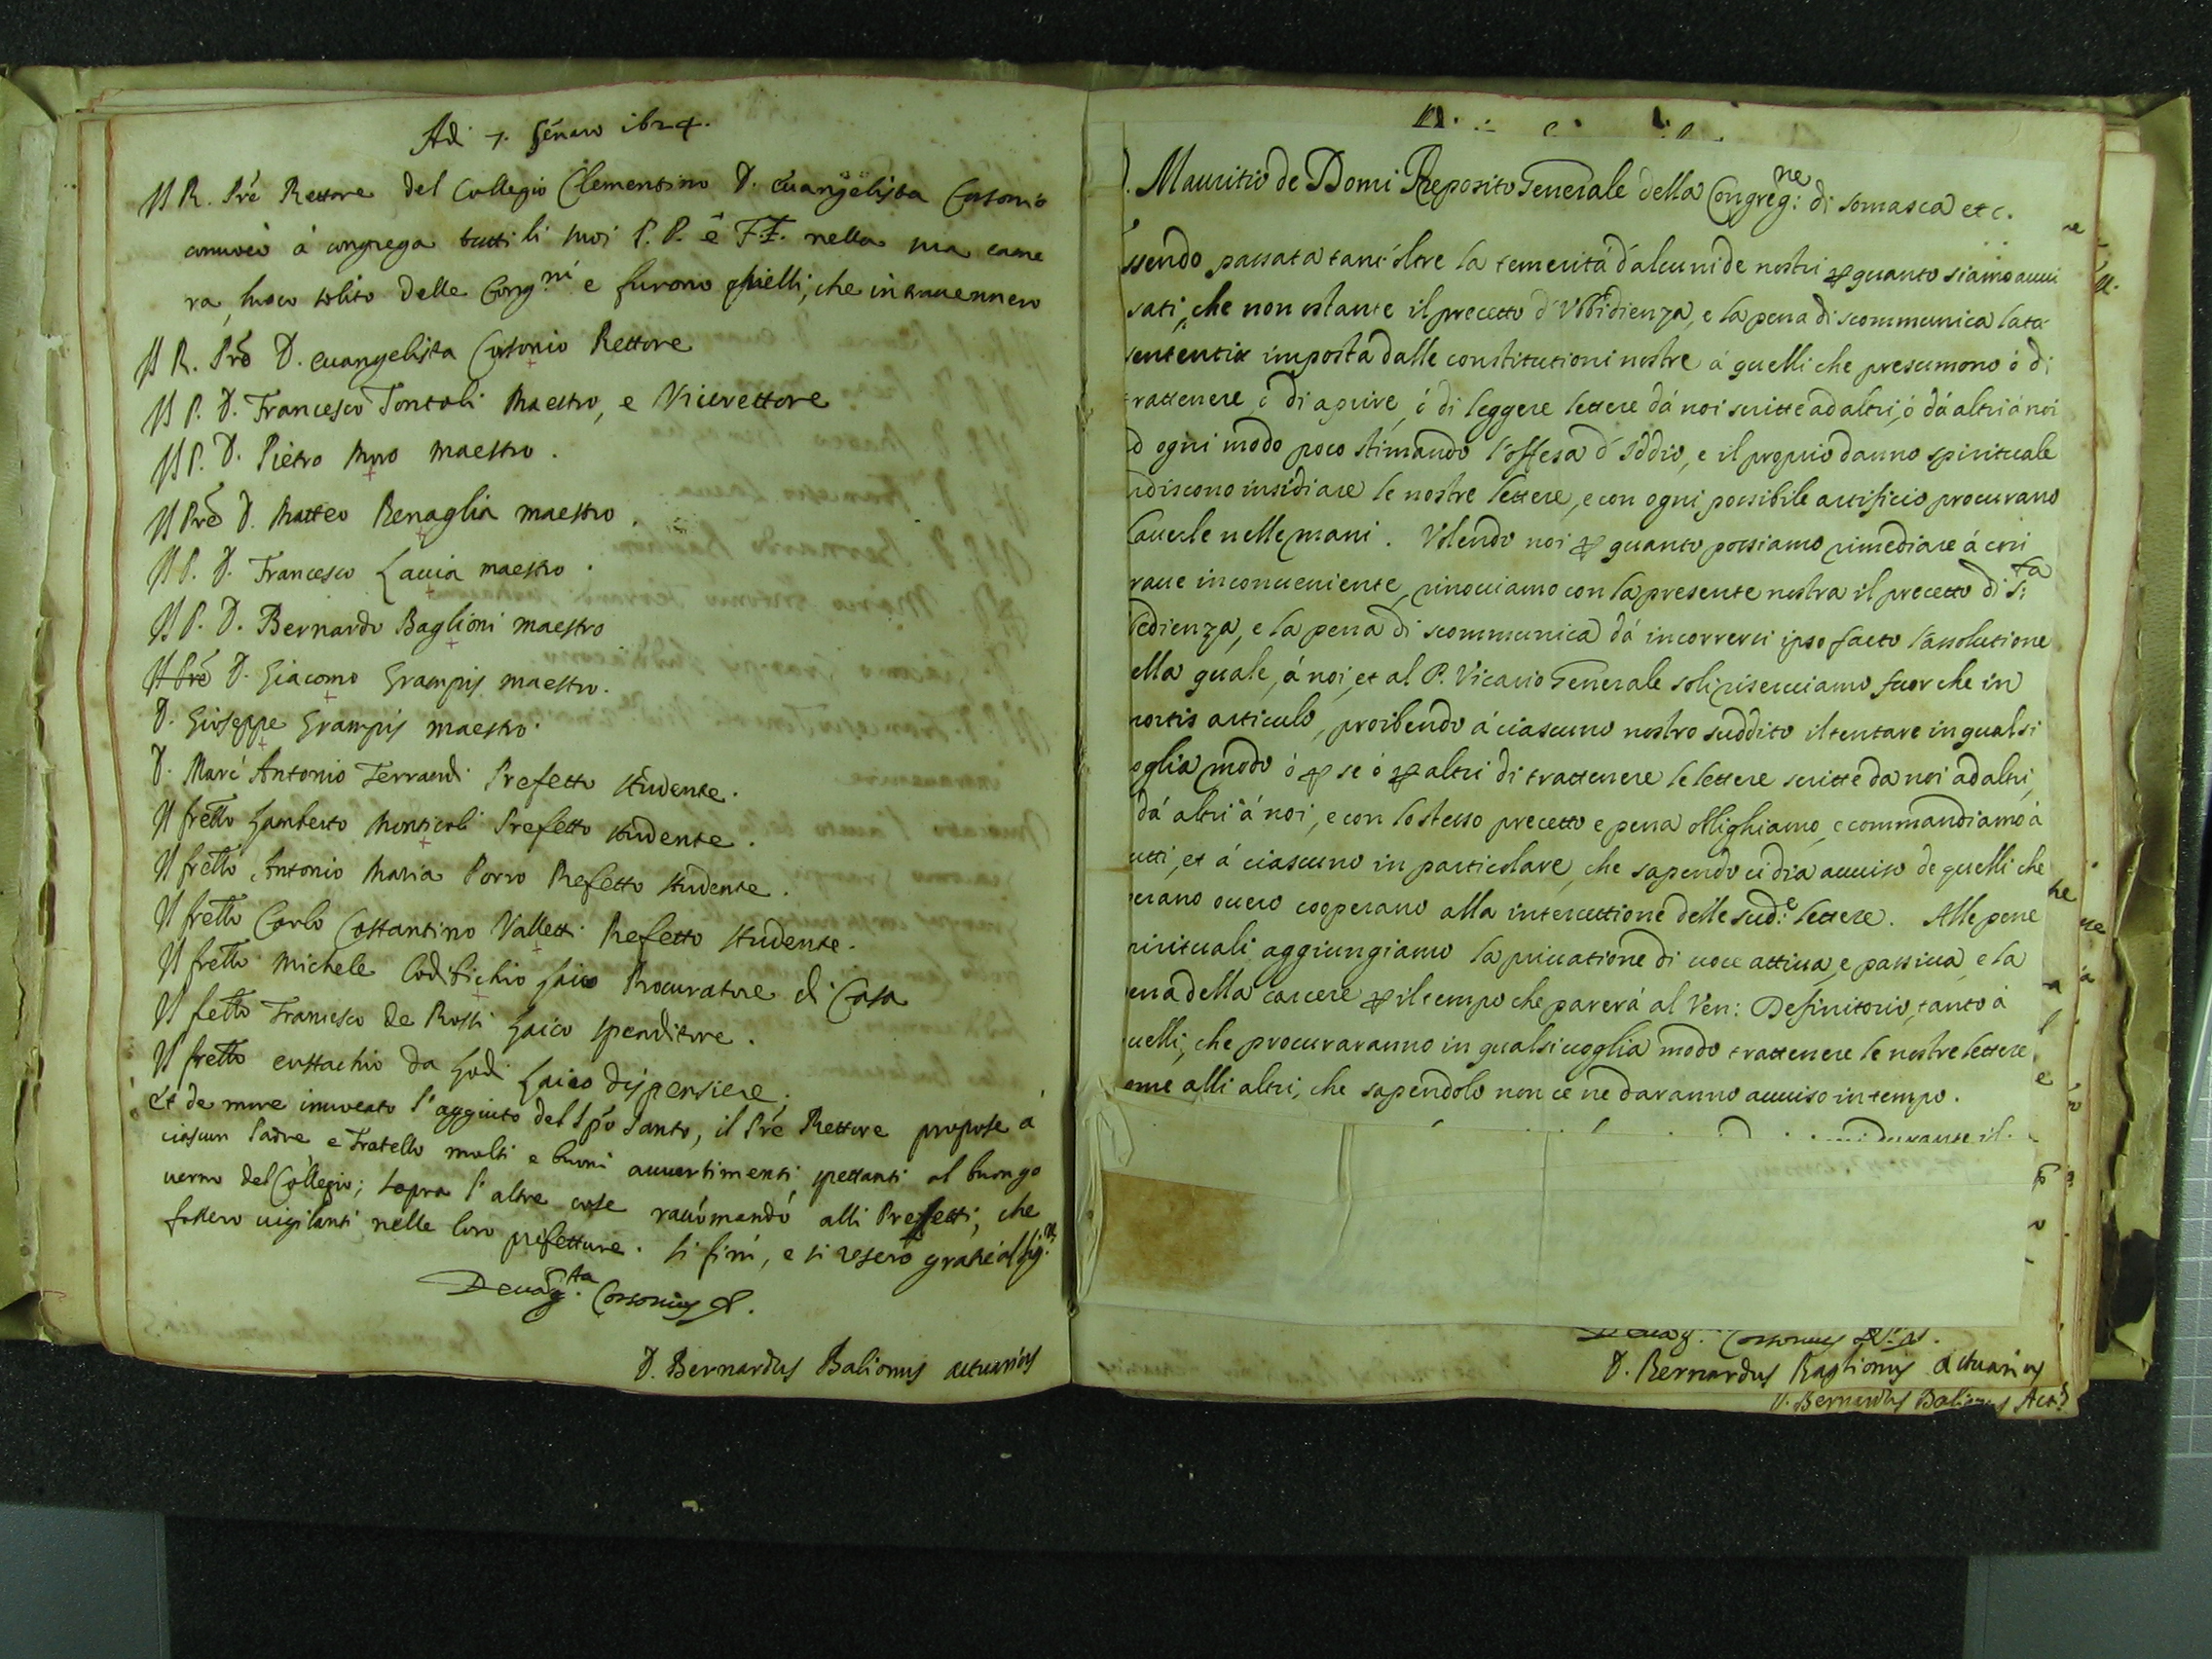 Adi 7. Genaro 1624.
Il R. Prē Rettore del Collegio Clementino D. Euangelista Cosonio
conuocò à congrega tutti li suoi P.P. è F.F. nella sua came
ra, luoco solito delle Congni e furono quelli, che interuennero
Il R. Prē D. Euangelista Cosonio Rettore
Il P. D. Francesco Tontoli Maestro, e Vicerettore
Il P. D. Pietro Moro maestro.
Il Prē D. Matteo Renaglia maestro.
Il P. D. Francesco Lauia maestro.
Il P. D. Bernardo Baglioni maestro
Il Prē D. Giacomo Grampis maestro.
D. Gioseppe Grampis maestro.
D. Marc' Antonio Ferrandi Prefetto studente.
Il frētto Lamberto Monticoli Prefetto studente.
Il frētto Antonio Maria Porro Prefetto studente.
Il frētto Carlo Costantino Valletti Prefetto studente.
Il frētto Michele laico Procuratore di Casa
Il frētto Francesco de Rossi Laico spenditore.
Il frētto eustachio da Lodi Laico dispensiere.
Et de more inuocato l'aggiuto del Spō Santo, il Prē Rettore propose à
ciascun Padre e Fratello molti e buoni auuertimenti spettanti al buon go
uerno del Collegio; sopra l'altre cose racōmandò alli Prefetti, che
fossero uigilanti nelle loro prefetture. Si finì, e si resero gratie al Sigre
D. Euagta Corsonius R.
D. Bernardus Balionus actuarius
D. Mauritio de Domi Preposito Generale della Congreg:ne di Somasca etc.
ssendo passata tant'oltre la temerità d'alcuni de nostri per quanto siamo auui
sati, che non ostante il precetto d'Vbbidienza, e la pena di scommunica lata
sententia imposta dalle constitutioni nostre à quelli che presumono ò di
trattenere, ò di aprire, ò di leggere lettere dà noi scritte ad altri, ò dà altri à noi
d ogni modo poco stimando l'offesa d'Iddio, e il proprio danno spirituale
rdiscono insidiare le nostre lettere, e con ogni possibile artificio procurano
hauerle nelle mani. Volendo noi per quanto possiamo rimediare à così
raue inconueniente, rinouiamo con la presente nostra il precetto di S:ta
bedienza, e la pena di scommunica dà incorrersi ipso facto l'assolutione
ella quale, à noi, et al P. Vicario Generale soli riseruiamo fuor che in
mortis articulo, proibendo à ciascuno nostro suddito il tentare in qual si
oglia modo ò per se ò per altri di trattenere le lettere scritte da noi ad altri,
dà altri à noi, e con lo stesso precetto e pena oblighiamo, e commandiamo à
utti, et à ciascuno in particolare, che sapendo ci dia auuiso de quelli che
perano ouero cooperano alla intercettione delle sud:e lettere. Alle pene
pirituali aggiungiamo la priuatione di uoce attiua, e passiua, e la
ena della carcere per il tempo che parerà al Ven: Definitorio, tanto à
uelli, che procuraranno in qualsiuoglia modo trattenere le nostre lettere,
ome alli altri, che sapendolo non ce ne daranno auuiso in tempo.
D. Euag. Corsonius
D. Bernardus Baglionus Actuarius
D. Bernardus Balionus Act.s